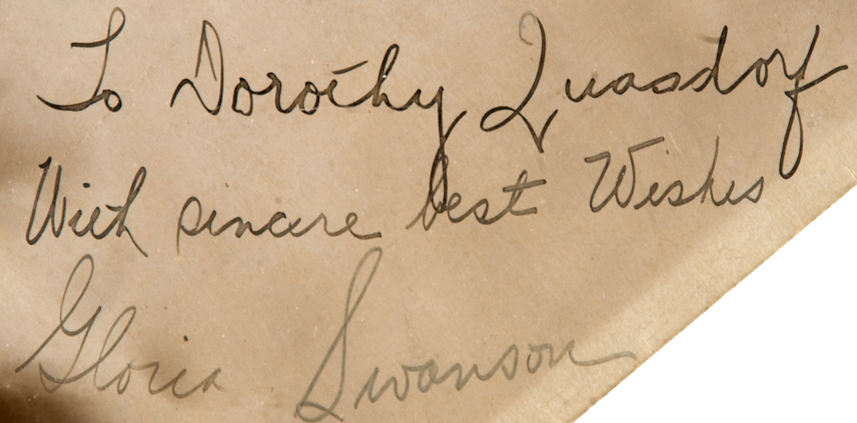 To Dorothy Quasdorf
With sincere best Wishes
Gloria Swanson